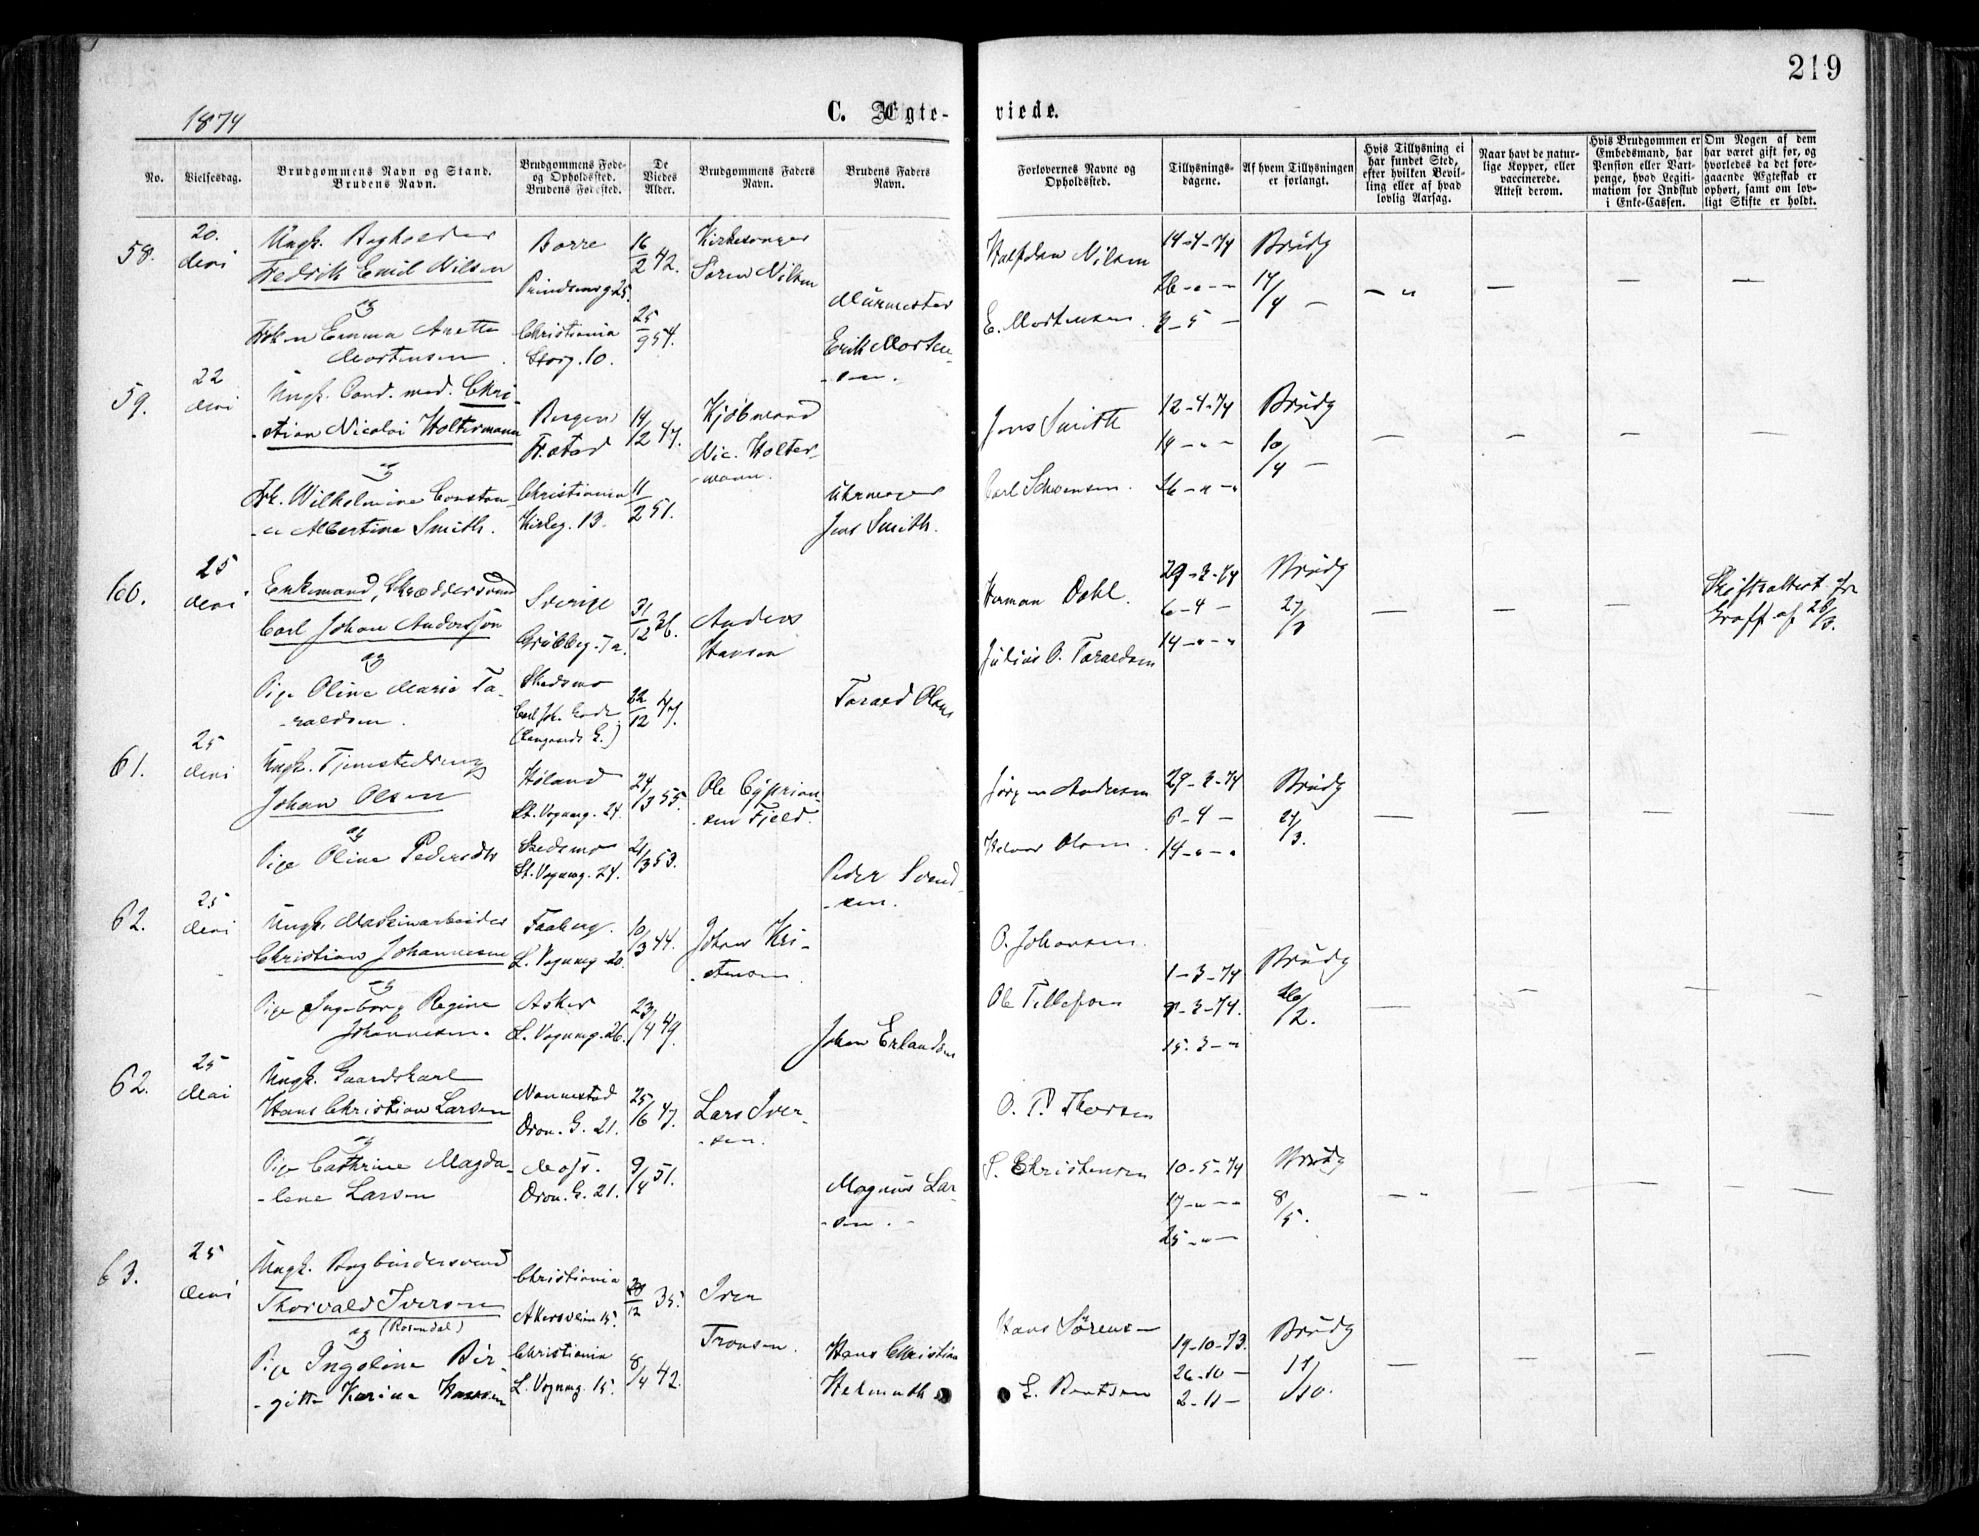 219
1874
C. Ægte-
viede.
No.
Vielsesdag.
Brudgommens Navn og Stand.
Brudens Navn.
Brudgommens Føde-
og Opholdssted.
Brudens Fødested.
De
Viedes
Alder.
Brudgommens Faders
Navn.
Brudens Faders
Navn.
Forlovernes Navne og
Opholdssted.
Tillysnings-
dagene.
Af hvem Tillysningen
er forlangt.
Hvis Tillysning ei
har fundet Sted,
efter hvilken Bevil-
ling eller af hvad
lovlig Aarsag.
Naar havt de natur-
lige Kopper, eller
vaccinerede.
Attest derom.
Hvis Brudgommen er
Embedsmand, har
Pension eller Vart-
penge, hvad Legiti-
mation for Indskud
i Enke-Cassen.
Om Nogen af dem
har været gift før, og
hvorledes da det fore-
gaaende Ægteskab er
ophørt, samt om lov-
ligt Skifte er holdt.
58.
20.
Mai
Ungk. Bogholder
Fredrik Emil Nilsen
og
Frken Emma Anette
Mortensen
Borre
Prindsensg. 25.
Christiania
Storg. 10.
16/2 42.
25/9 54.
Kirkesanger
Søren Nilsen
Murmester
Erik Morten-
-sen.
Halfdan Nilsen
E. Mortensen.
14-4-74
26-"-"
3-5-
Brudg
14/4
59.
22
Mai
Ungk. Cand. med. Chri-
-stian Nicolai Holtermann
og
Frk. Wilhelmine Constan-
-ce Albertine Smith.
Bergen
Fr.stad
Christiania
Kirkeg. 13.
14/12 47.
11/2 51.
Kjøbmand
Nic. Holter-
-mann.
Uhrmager
Jens Smith.
Jens Smith
Carl Schwensen.
12-4-74
19-"-"
26-"-"
Brudg
10/4
60.
25
Mai
Enkemand, Skræddersvend
Carl Johan Andersson
og
Pige Oline Marie Ta-
-raldsen.
Sverige
Grübbeg. 7a.
Skedsmo
Carl Joh. Gade
31/12 36.
22/12 47.
Anders
Hansen
Tarald Olsen
Herman Dahl.
Julius O. Taraldsen
29-3-74
6-4-
14-"-"
Brudg
27/3
Skifteattest fra
af 28/3.
61.
25
Mai
Ungk. Tjenestedreng
Johan Olsen
og
Pige Oline Pedersdtr
Høland
St. Vognmg. 24.
Skedsmo
St. Vognmg. 24.
24/3 55.
21/3 53.
Ole Cyprian-
-sen Fjeld.
Peder Svend-
-sen.
Jørgen Andersen
Halvor Olsen.
29-3-74
6-4-
14-"-"
Brudg
27/3.
62.
25
Mai
Ungk. Maskinarbeider
Christian Johannesen
og
Pige Ingeborg Regine
Johannesen.
Faaberg.
L. Vognmg. 20.
Asker
L. Vognmg. 26.
10/3 44.
23/4 49.
Johan Kri-
-stensen
Johan Erlandsen
O. Johansen.
Ole Tellefsen
1-3-74
8-3-74.
15-3-"
Brudg
26/2.
62.
25
Mai
Ungk. Gaardskarl
Hans Christian Larsen
og
Pige Cathrine Magda-
-lene Larsen
Nannestad
Dron. G. 21.
Moss.
Dron. G. 21.
25/6 47.
9/4 51.
Lars Iver-
-sen.
Magnus Lar-
-sen.
O. P. Thorsen
S. Christensen
10-5-74
17-"-"
25-"-
Brudg
8/5.
63.
25
Mai
Ungk. Bogbindersvend
Thorvald Iversen
og (Rosendal)
Pige Ingeline Bir-
-gitte Karine Hansen
Christiania
Akersveien 15.
Christiania
L. Vognmg. 15.
20/12 35.
8/4 42.
Iver
Tronsen.
Hans Christian
Helmuth
Hans Sørensen
E. Bentsen
19-10-73.
26-10-
2-11-
Brudg
17/10.